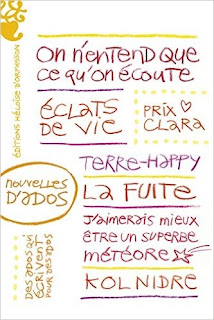 ÉDITIONS HÉLOÏSE D'ORMESSON
On n'entend que
ce qu'on écoute
éclats
de vie
PRIX
CLARA
TERRE-HAPPY
nouvelles
D'ADOS
LA FUITE
J'aimerais mieux
être un superbe
météore
KOL NIDRE
Des ados qui
écrivent
pour des ados